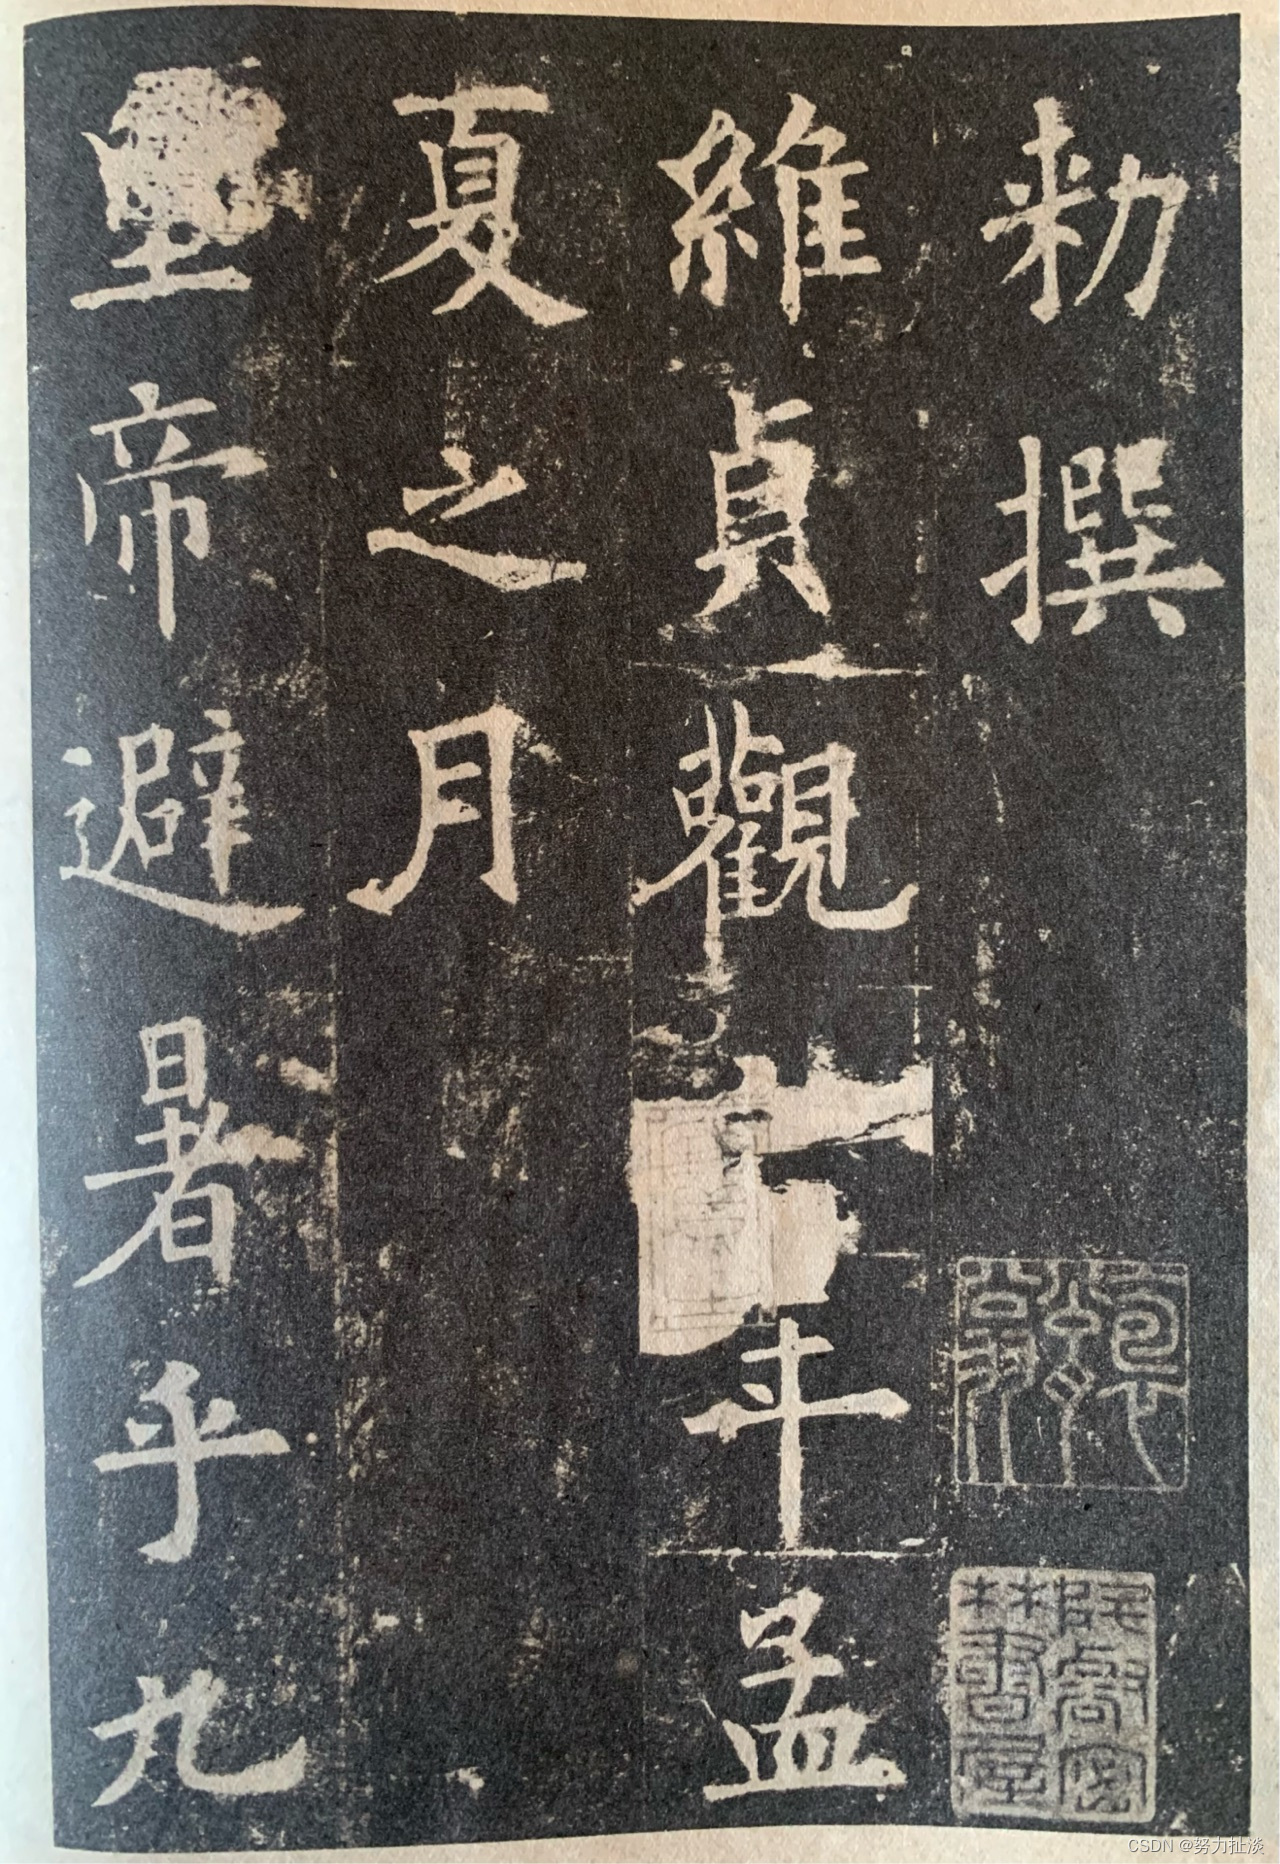 勑撰
維貞觀年孟
夏之月
皇帝避暑乎九
CSDN @努力扯淡